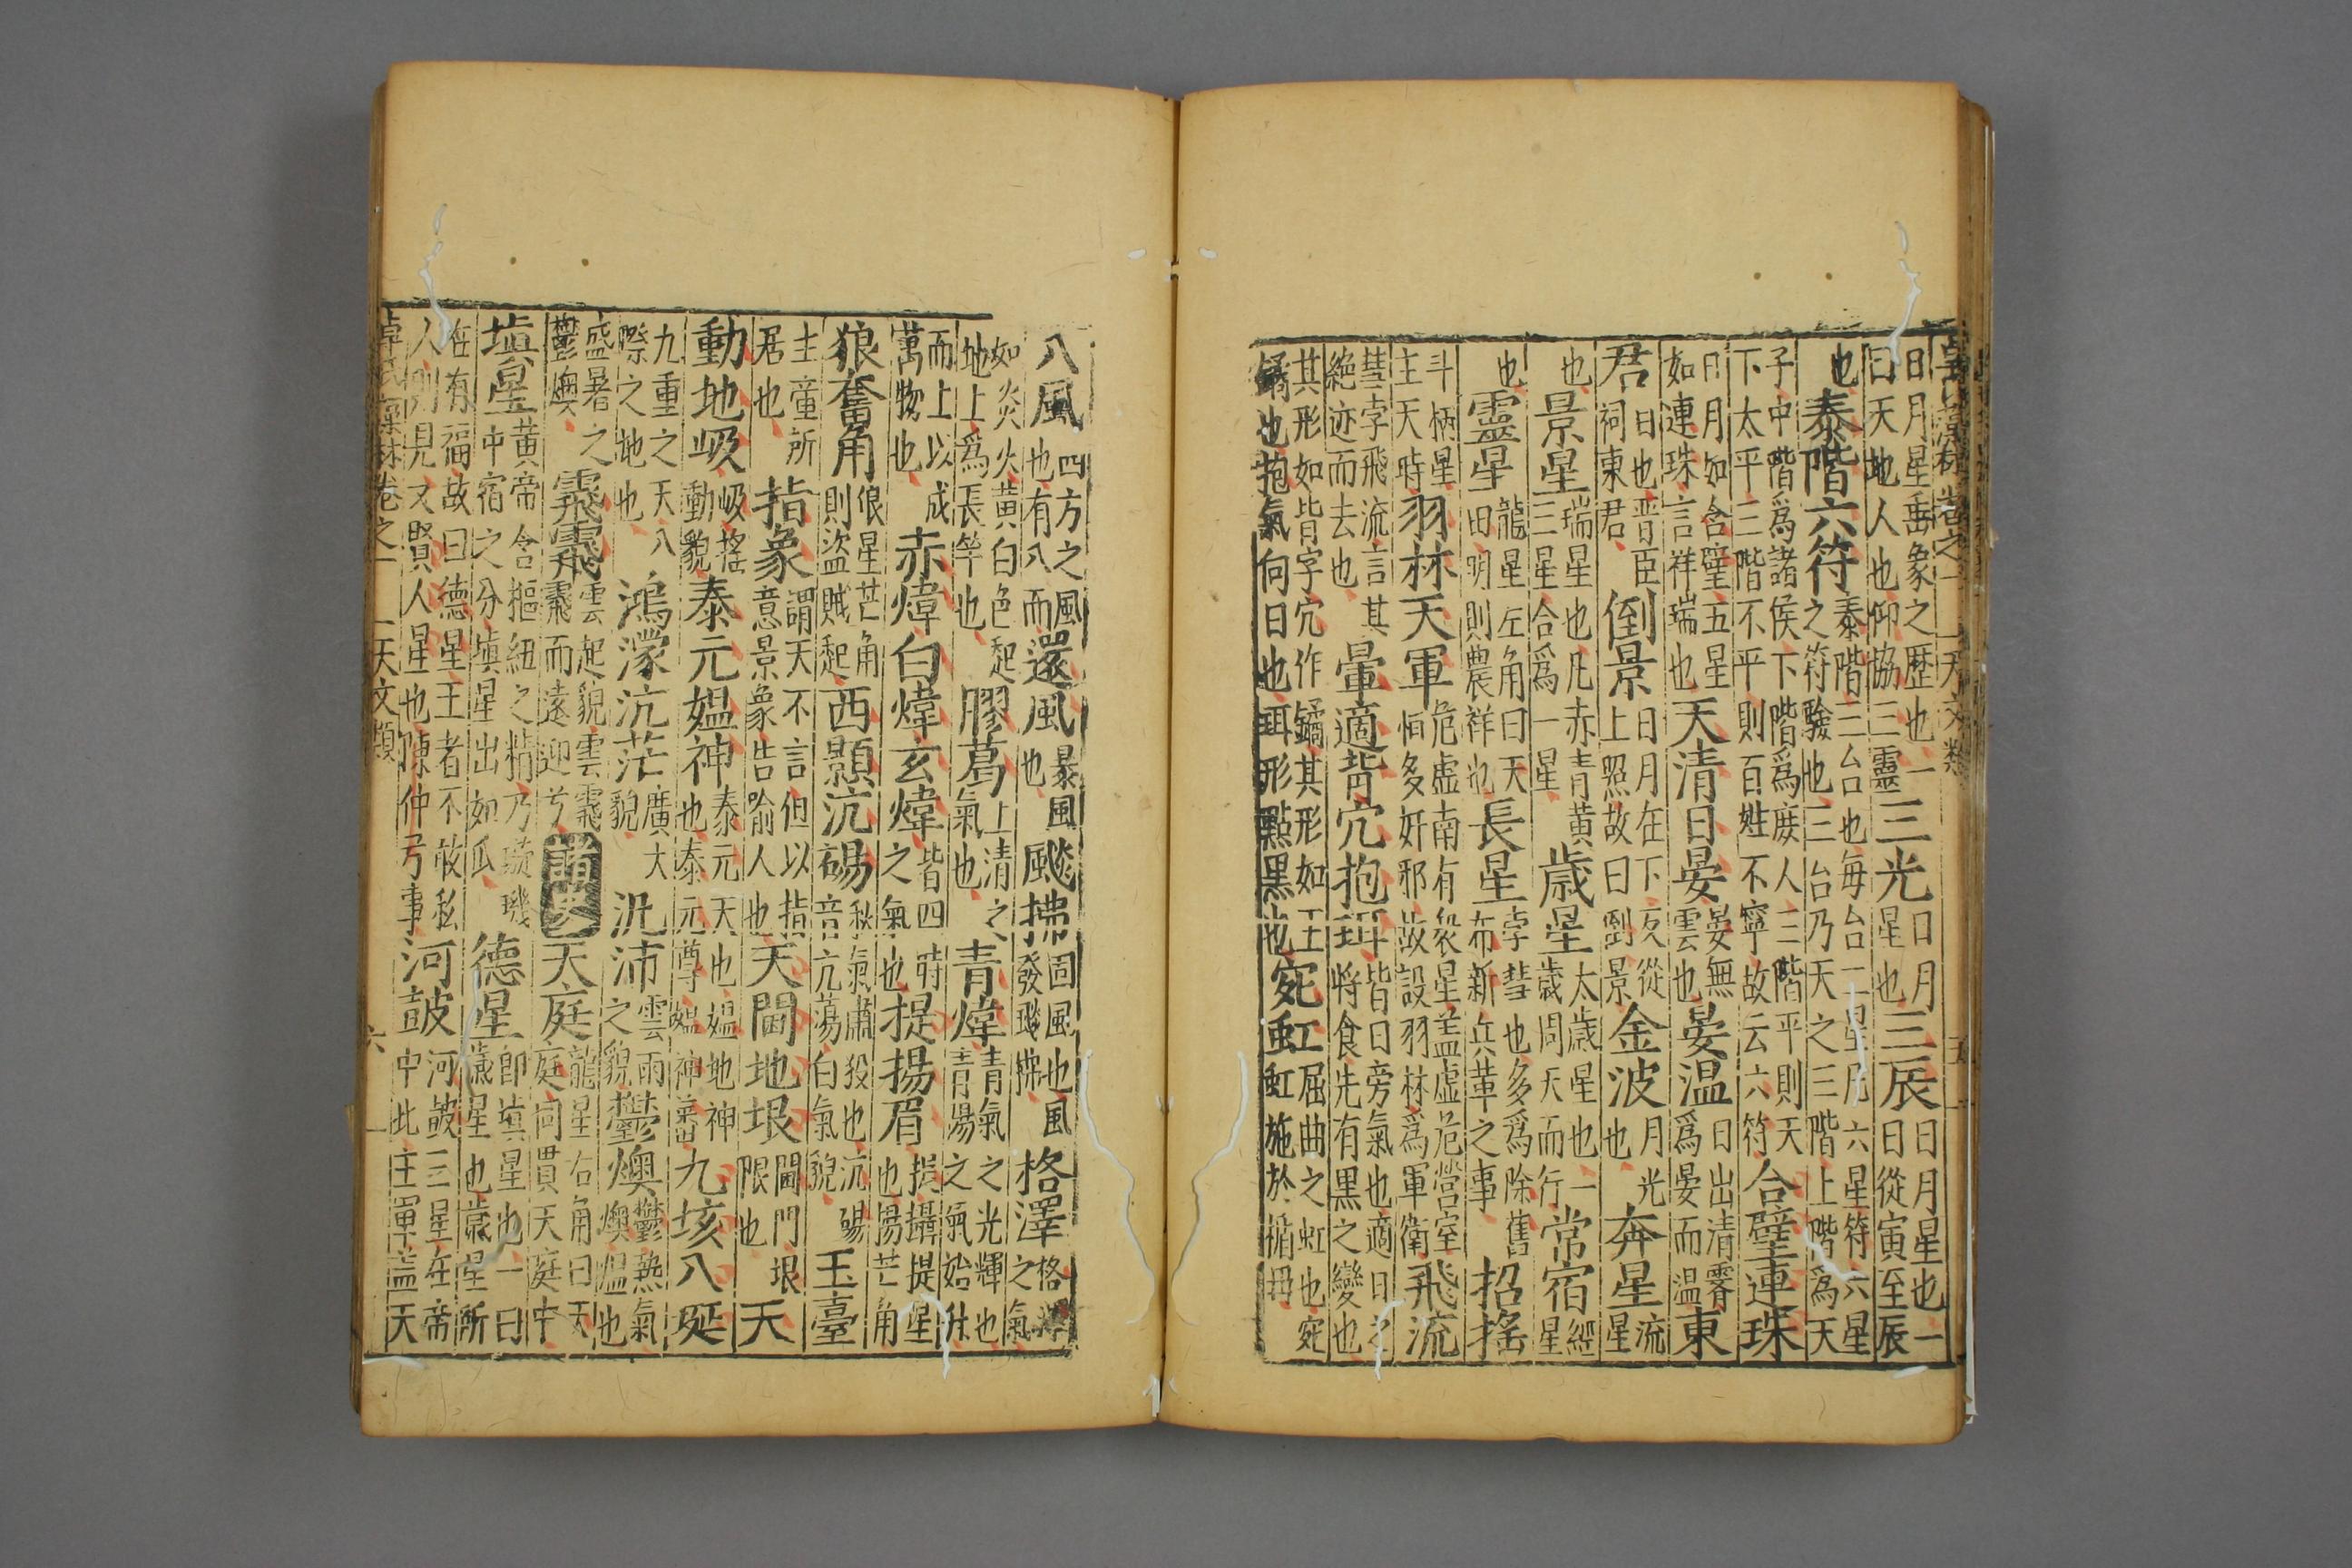 卓氏藻林卷之一 天文類 五
日月星垂象之歷也一曰天地人也仰協三靈三光日月星也三辰日月星也一曰從寅至辰
也泰階六符泰階三台也每台二星凡六星符六星之符驗也三台乃天之三階上階爲天
子中階爲諸侯下階爲庻人三階平則天下太平三階不平則百姓不寧故云六符合璧連珠
日月如合璧五星如連珠言祥瑞也天清日晏晏無雲也晏温日出清霽爲晏而温東
君日也晋臣祠東君倒景日月在下反從上照故曰倒景金波月光也奔星流星
也景星瑞星也凡赤青黄三星合爲一星歲星太歲星也一歲周天而行常宿經星
也靈星龍星左角曰天田明則農祥也長星孛彗也多爲除舊布新兵革之事招搖
斗柄星主天時羽林天軍危虛南有衆星盖虛危營室恒多奸邪故設羽林爲軍衛飛流
彗孛飛流言其絶迹而去也暈適背穴抱珥皆日旁氣也適日之將食先有黒之變也
其形如背字穴作鐍其形如玉鐍也抱氣向日也珥形點黒也宛虹屈曲之虹也宛虹施於楯毋
八風四方之風也有八而還風暴風也飈拂回風也風發颷拂格澤格澤之氣
如炎火黄白色起地上爲長竿也膠葛上清之氣也青煒青氣之光輝也青陽之氣始升
而上以成萬物也赤煒白煒玄煒皆四時之氣也提揚眉提攝提星也揚芒角
狼奮角俍星芒角則盗賊起西顥沆碭秋氣肅殺也沆碭音亢蕩白氣貌玉臺
主童所居也指象謂天不言但以指意景象告喻人也天閫地垠閫門垠限也天
動地岋岋摇動貌泰元媪神泰元天也媪地神也泰元尊媪神蕃九垓八埏
九重之天八際之地也鴻濛沆茫廣大貌汎沛雲雨之貌鬱燠鬱熱氣燠温也
盛暑之鬱燠雲起貌雲而遠迎兮天庭龍星右角曰天庭向貫天庭中
塡星黄帝含樞紐之精乃璇璣中宿之分塡星出如瓜德星即塡星也一曰歲星也歲星所
在有福故曰德星王者不敢私人則見又賢人星也陳仲弓事河鼓河皷三星在帝中此主軍盖天
卓氏藻林卷之一 天文類 六